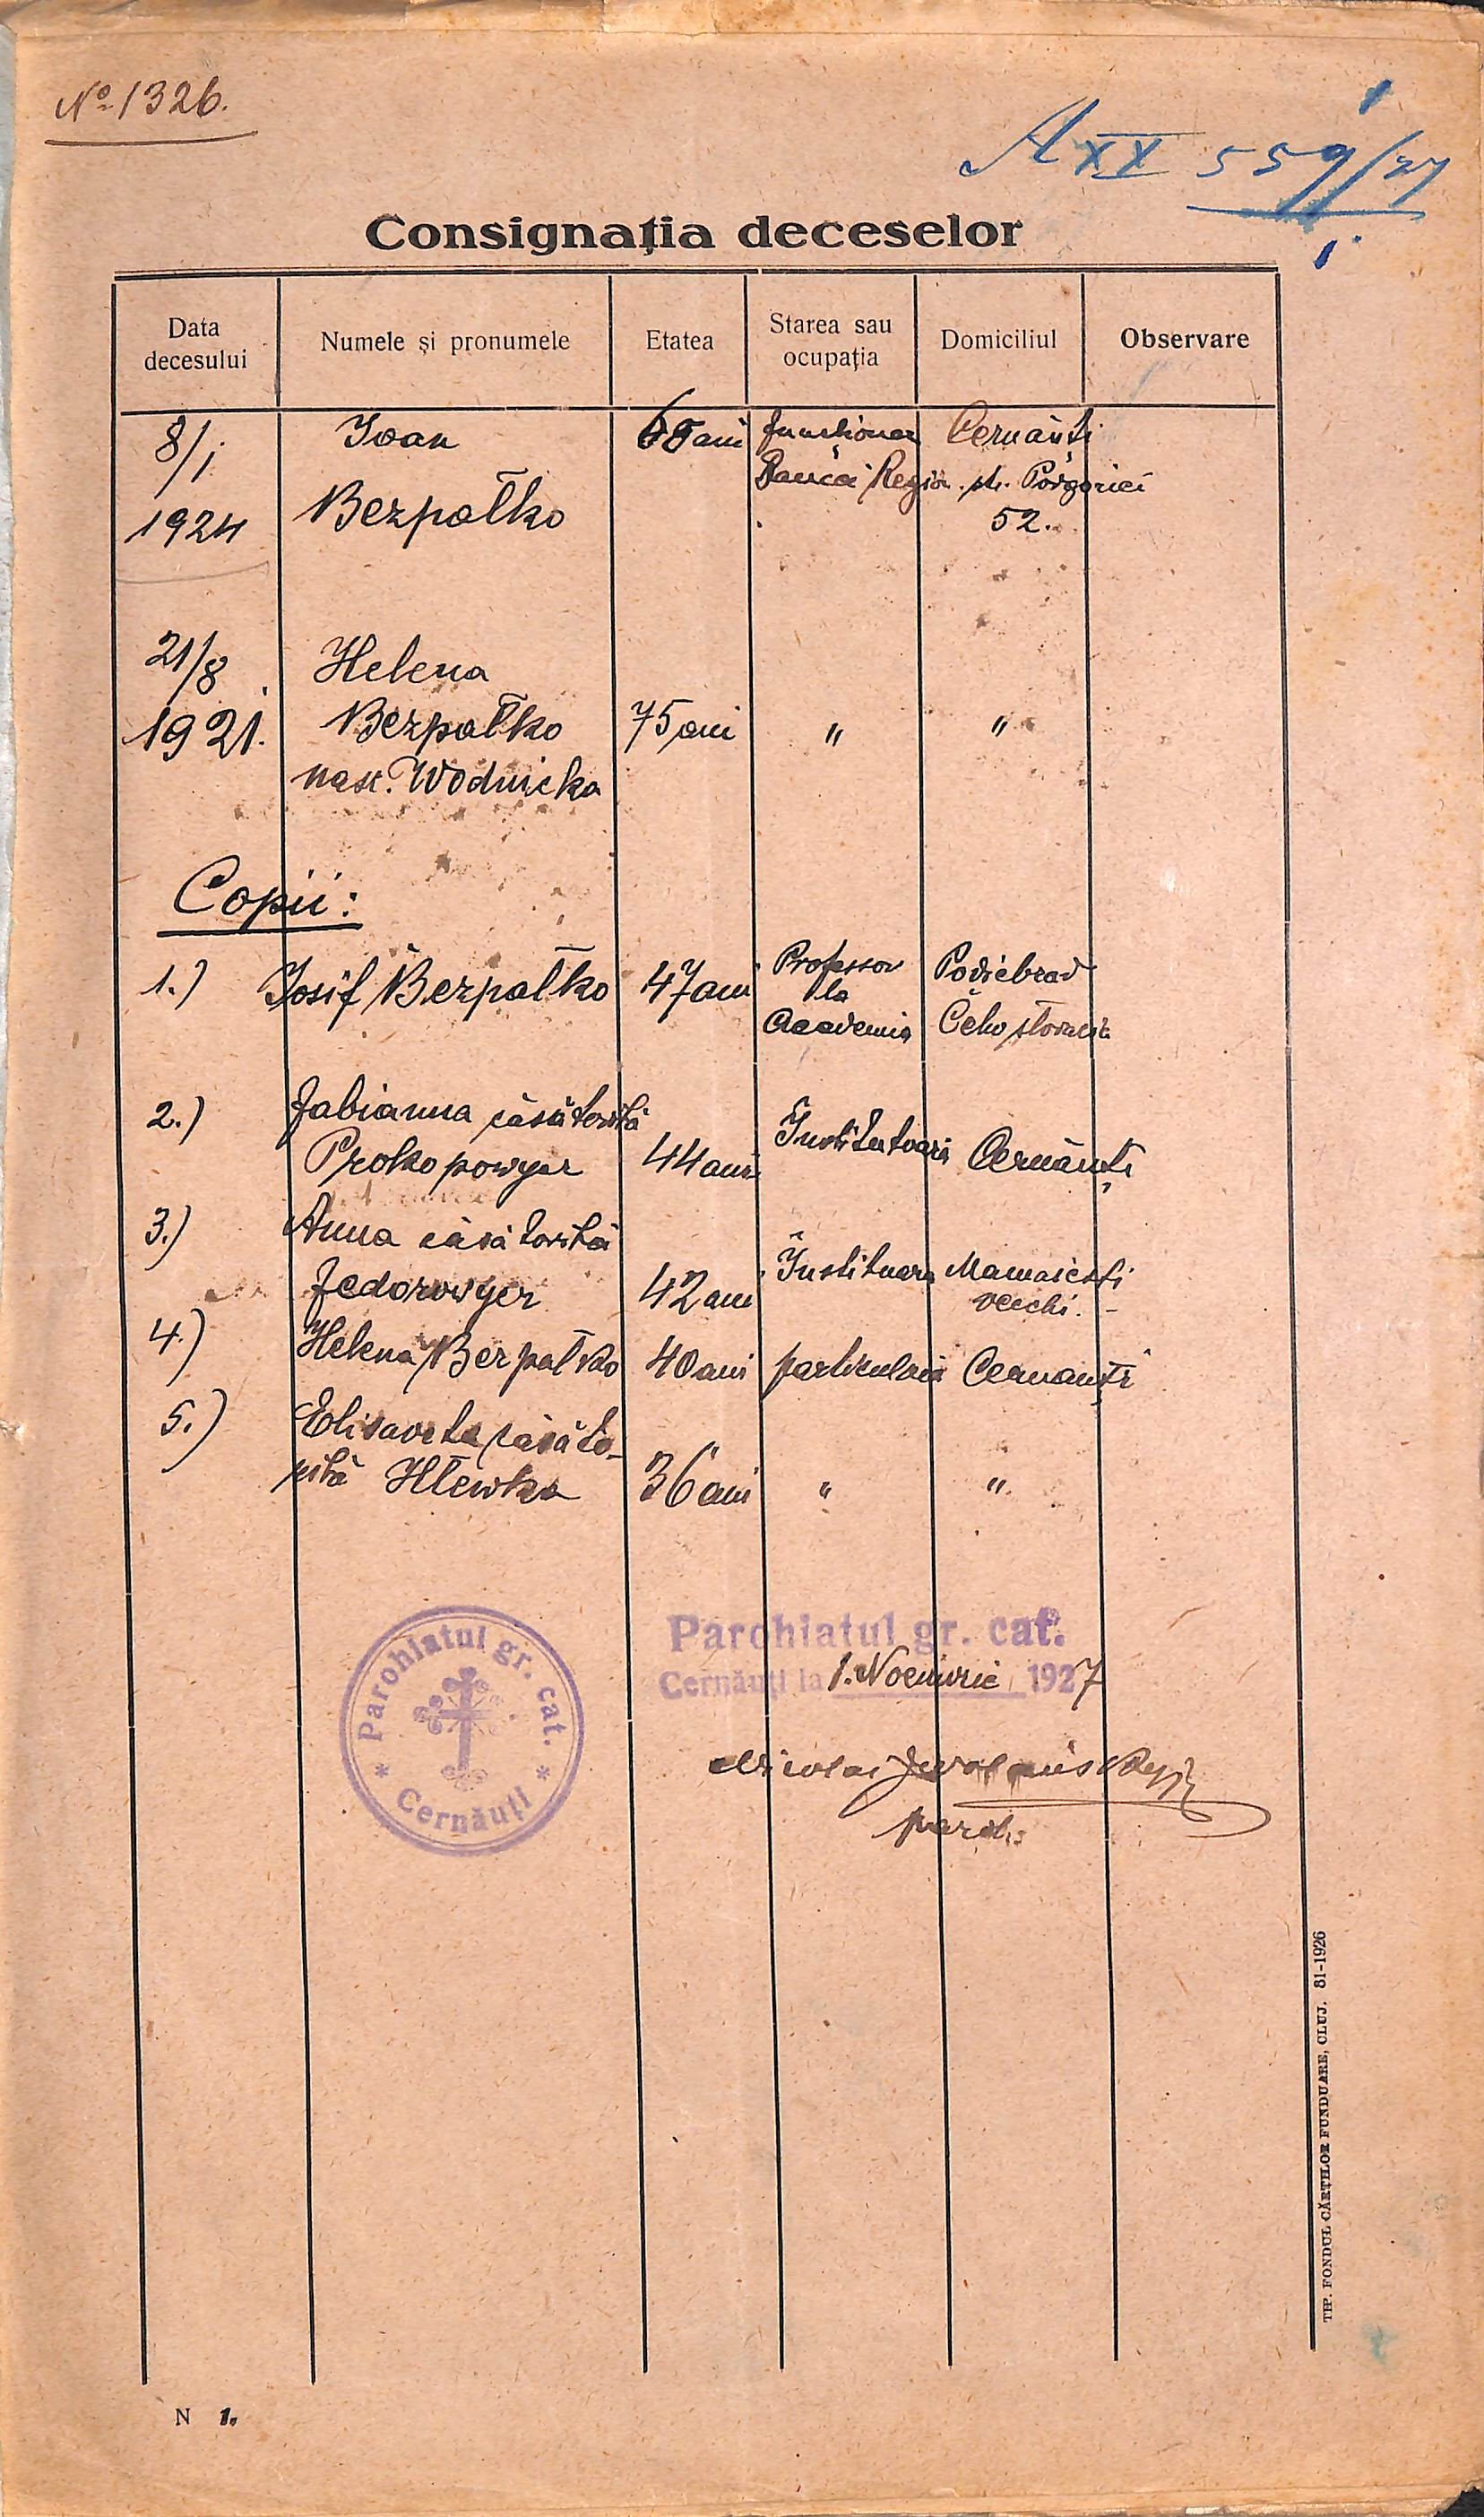 No 1326.
A XX 559/27
Consignaţia deceselor
Data decesului | Numele şi pronumele | Etatea | Starea sau ocupaţia | Domiciliul | Observare
8/I 1924 | Ioan Bezpałko | ani | funcționar Băncii Region. | Cernăuți str. Podgoriei 52.
21/8 1921. | Helena Bezpałko nasc. Wodnicka | 75 ani | " | "
Copii:
1.) Iosif Bezpałko | 47 ani | Professor la Academia | Podiebrad Čeho slovacia
2.) Fabianna căsătorită Prokopowycz | 44 ani | Institutoară | Cernăuți
3.) Anna căsătorită Fedorowycz | 42 ani | Instituară | Mamaiești vechi. -
4.) Helena Bezpałko | 40 ani | particulară | Cernauți
5.) Elisaveta căsăto-
rită Hlewka | 36 ani | " | "
Parohiatul gr. cat.
Cernăuţi la 1. Noemvrie 1927
Parohiatul gr. cat. * Cernăuţi *
Nicolai
paroh
TIP. FONDUL CĂRŢILOR FUNDUARE, CLUJ. 81-1926
N 1.